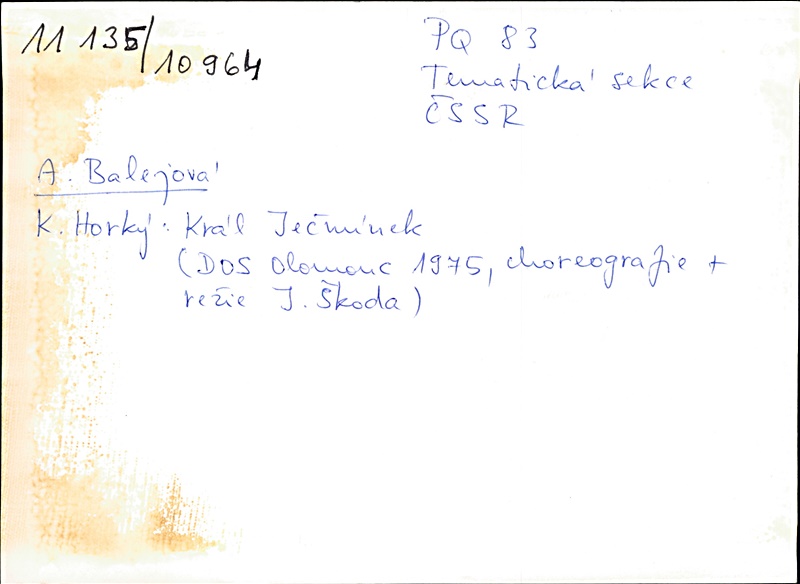 11 135/10964
PQ 83
Tematická sekce
ČSSR
A. Balejová
K. Horký: Král Ječmínek
(DOS Olomouc 1975, choreografie +
režie J. Škoda)